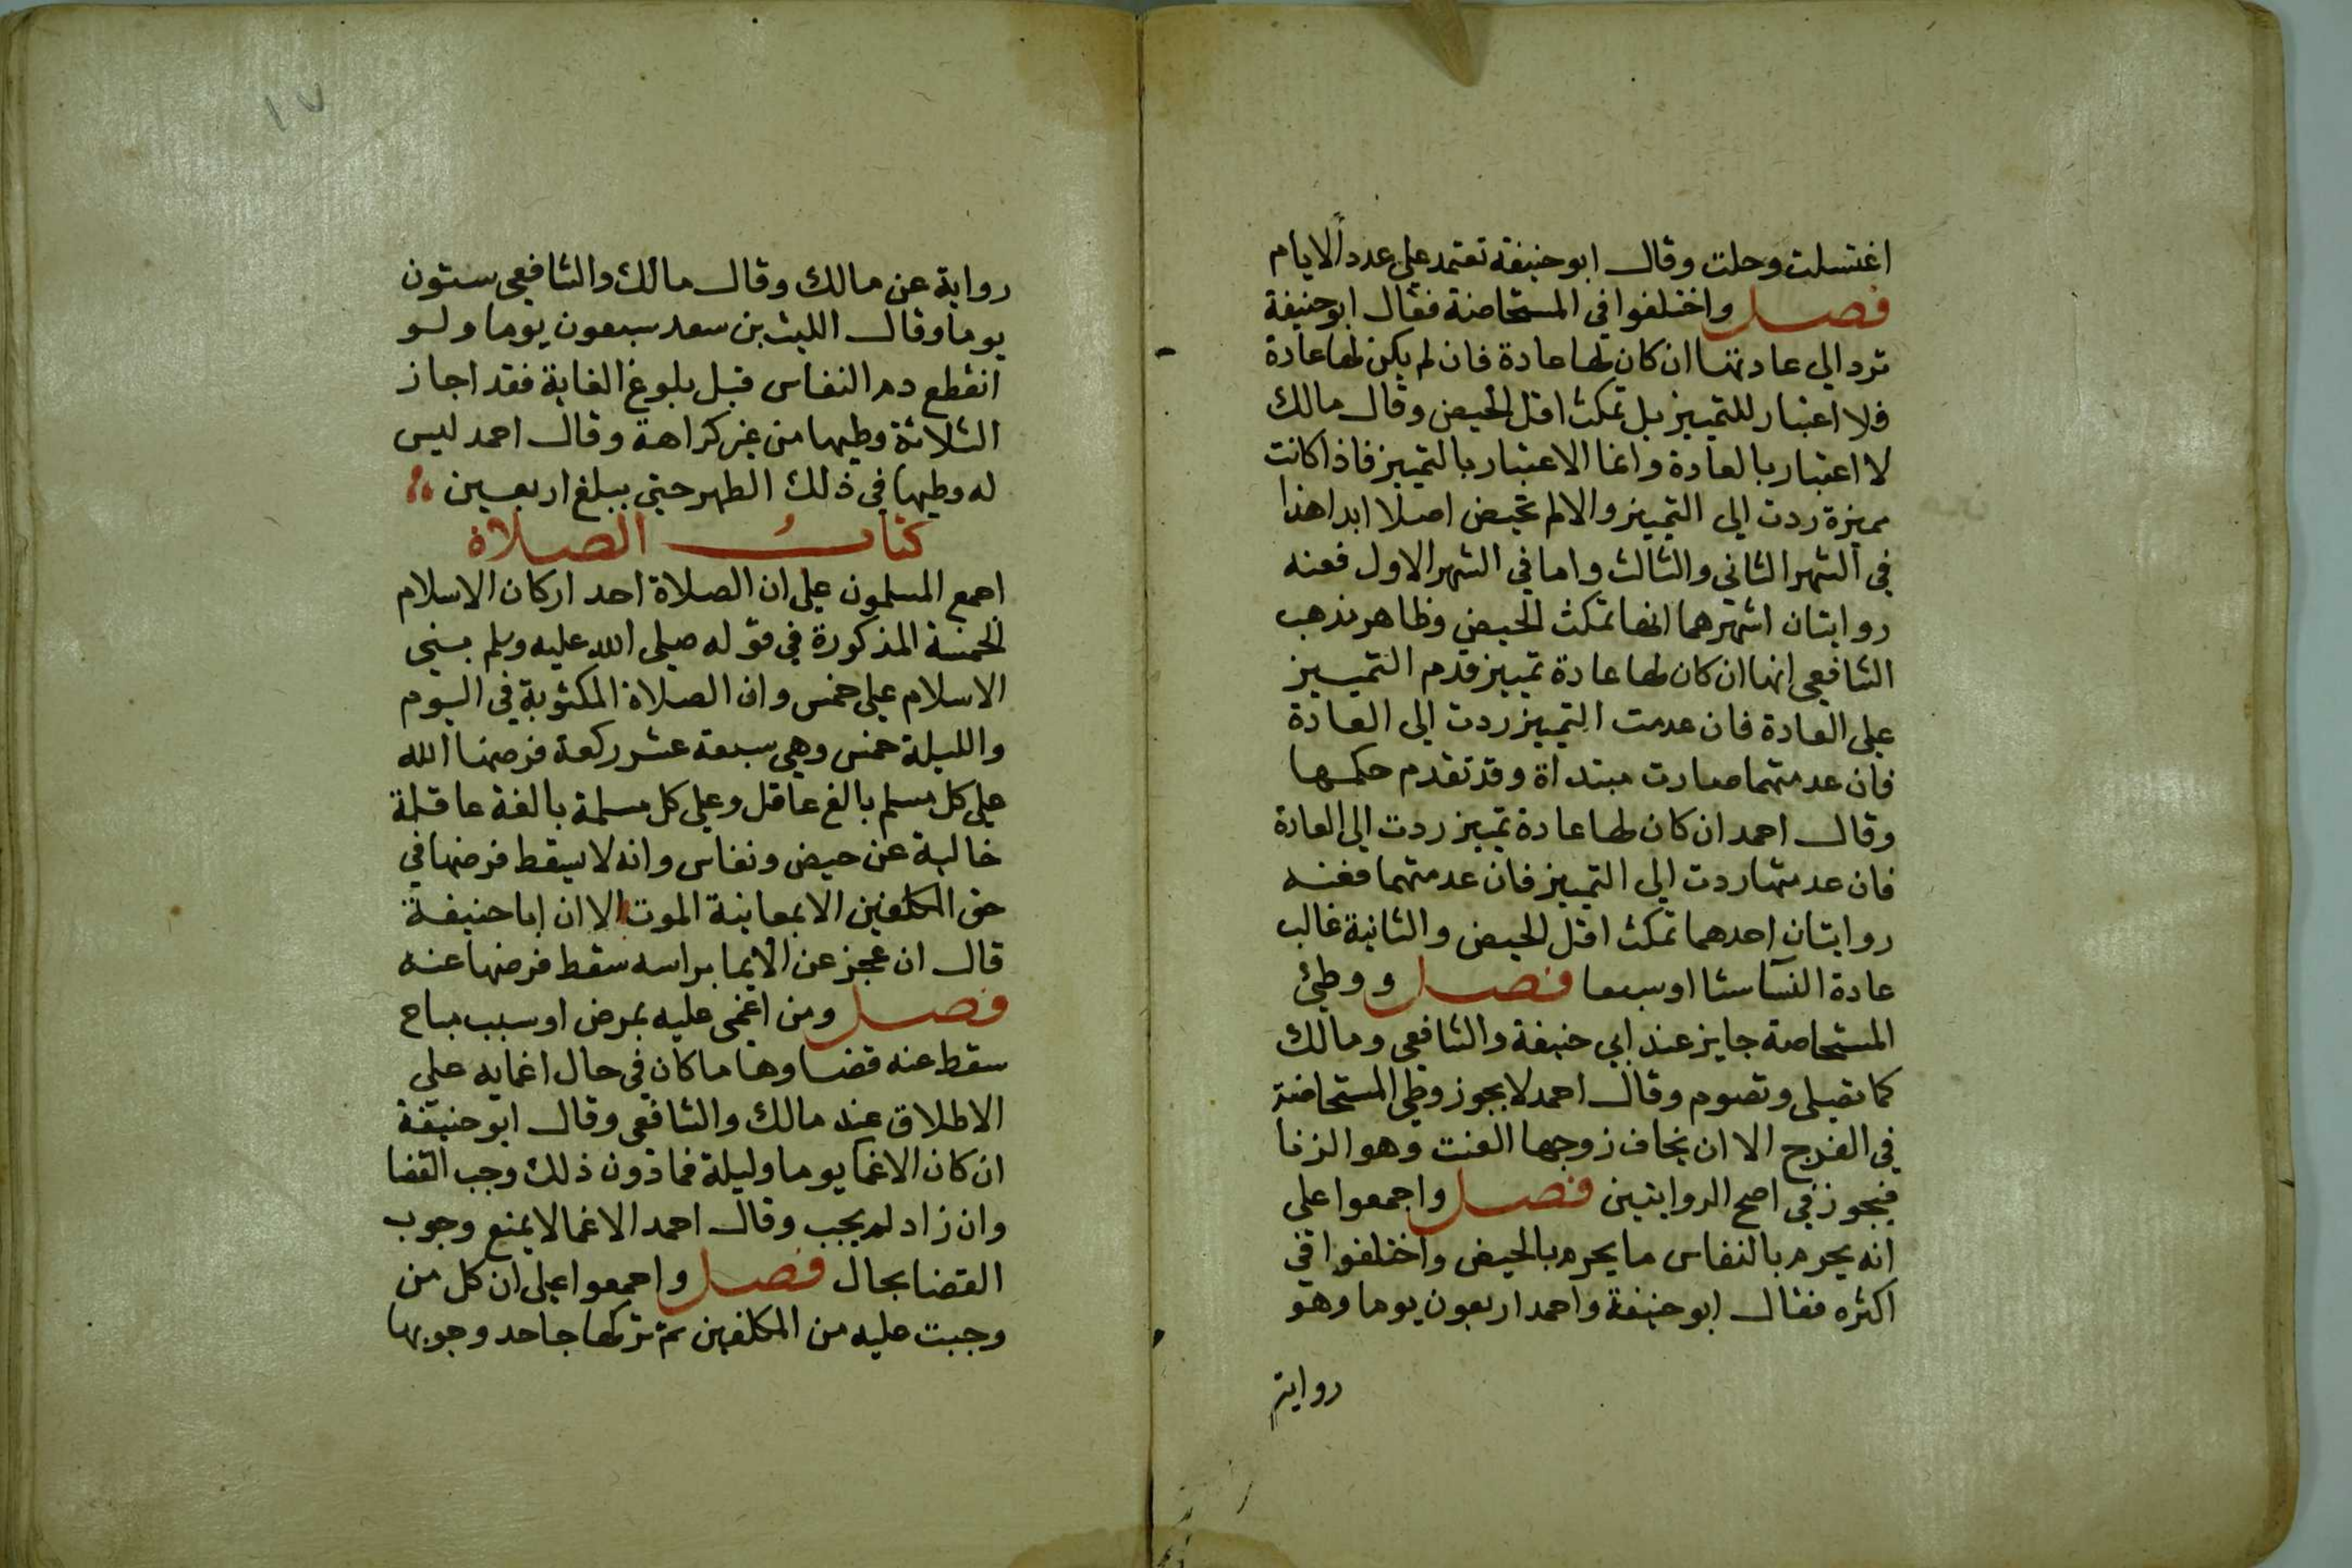 اغتسلت وحلت وقال ابو حنيفة تعتمد على عدد الايام
فصل واختلفوا في المستحاضة فقال ابو حنيفة
ترد الي عادتها ان كان لها عادة فان لم يكن لها عادة
فلا اعتبار للتمييز بل تمكث اقل الحيض وقال مالك
لا اعتبار بالعادة وانما الاعتبار بالتمييز فاذا كانت
مميزة ردت الي التمييز والا لم تحيض اصلا ابدا هذا
في الشهر الثاني والثالث واما في الشهر الاول فعنه
روايتان اشهرهما انها تمكث الحيض وظاهر مذهب
الشافعي انها ان كان لها عادة تمييز قدم التمييز
علي العادة فان عدمت التمييز ردت الي العادة
فان عدمتهما صارت مبتداة وقد تقدم حكمها
وقال احمد ان كان لها عادة تمييز ردت الي العادة
فان عدمتها ردت الي التمييز فان عدمتهما فعنه
روايتان احدهما تمكث اقل الحيض والثانية غالب
عادة النسآ ستا او سبعا فصل ووطئ
المستحاضة جايز عند ابي حنيفة والشافعي ومالك
كما تصلي وتصوم وقال احمد لا يجوز وطي المستحاضة
في الفرج الا ان يخاف زوجها العنت وهو الزنا
فيجوز في اصح الروايتين فصل واجمعوا علي
انه يحرم بالنفاس ما يحرم بالحيض واختلفوا في
اكثره فقال ابو حنيفة واحمد اربعون يوما وهو
رواية
١٧
رواية عن مالك وقال مالك والشافعي ستون
يوما وقال الليث بن سعد سبعون يوما ولو
انقطع دم النفاس قبل بلوغ الغاية فقد اجاز
الثلاثة وطيها من غير كراهة وقال احمد ليس
له وطيها في ذلك الطهر حتي يبلغ اربعين
كتاب الصلاة
اجمع المسلمون علي ان الصلاة احد اركان الاسلام
الخمسة المذكورة في قوله صلي الله عليه وسلم بني
الاسلام علي خمس وان الصلاة المكتوبة في اليوم
والليلة خمس وهي سبعة عشر ركعة فرضها الله
علي كل مسلم بالغ عاقل وعلي كل مسلمة بالغة عاقلة
خالية عن حيض ونفاس وانه لا يسقط فرضها في
حق المكلفين الا بمعاينة الموت الا ان ابا حنيفة
قال ان عجز عن الايما براسه سقط فرضها عنه
فصل ومن اغمي عليه بمرض او سبب مباح
سقط عنه قضا وها ما كان في حال اغمايه علي
الاطلاق عند مالك والشافعي وقال ابو حنيفة
ان كان الاغما يوما وليلة فما دون ذلك وجب القضا
وان زاد لم يجب وقال احمد الاغما لا يمنع وجوب
القضا بحال فصل واجمعوا علي ان كل من
وجبت عليه من المكلفين ثم تركها جاحد وجوبها